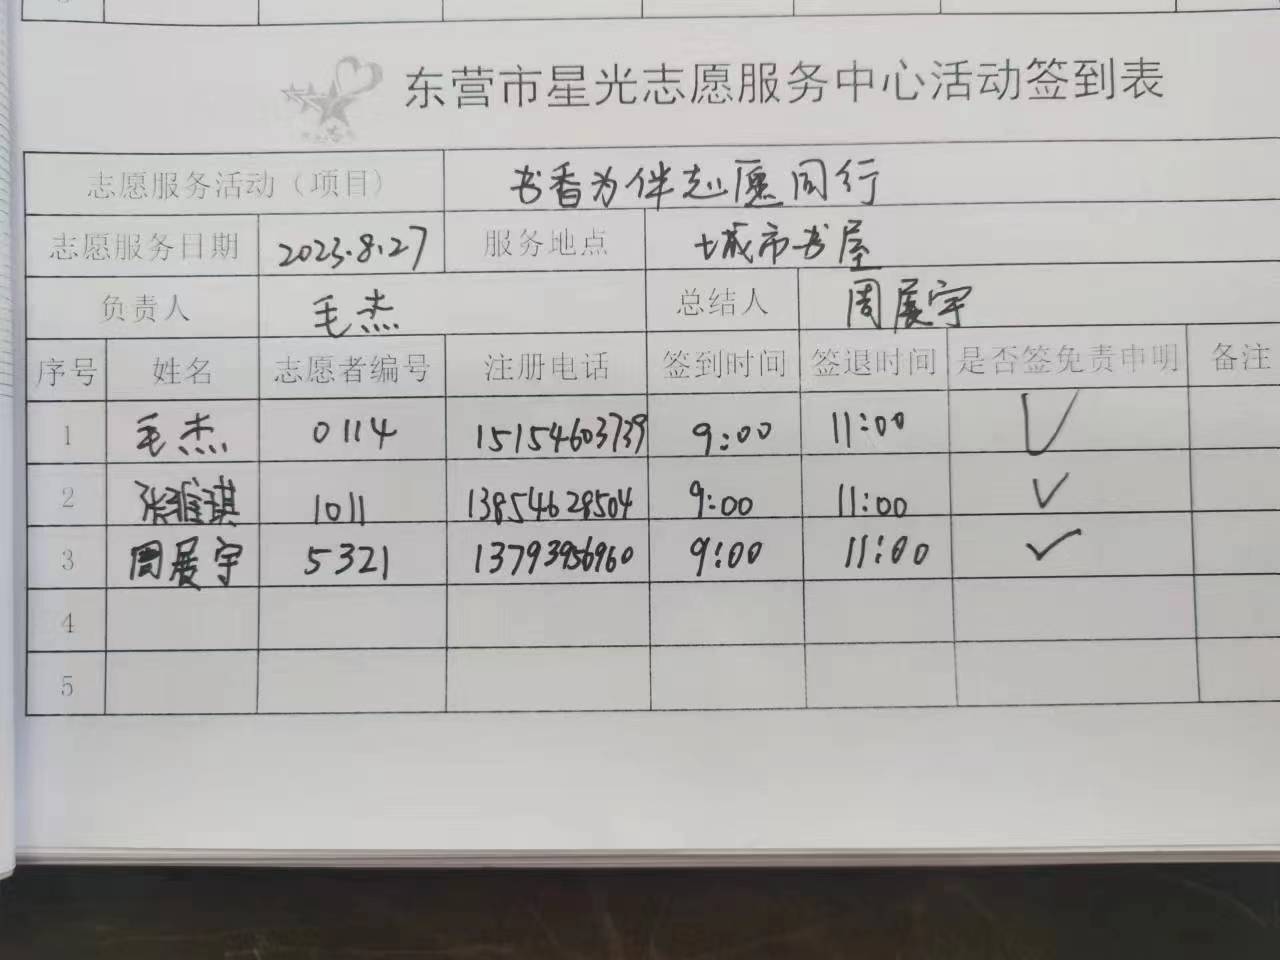 东营市星光志愿服务中心活动签到表
志愿服务活动（项目） 书香为伴志愿同行
志愿服务日期 2023.8.27 服务地点 城市书屋
负责人 毛杰 总结人 周展宇
序号 姓名 志愿者编号 注册电话 签到时间 签退时间 是否签免责申明 备注
1 毛杰 0114 15154603739 9:00 11:00 √
2 张雅琪 1011 13854628504 9:00 11:00 √
3 周展宇 5321 13793956960 9:00 11:00 √
4
5